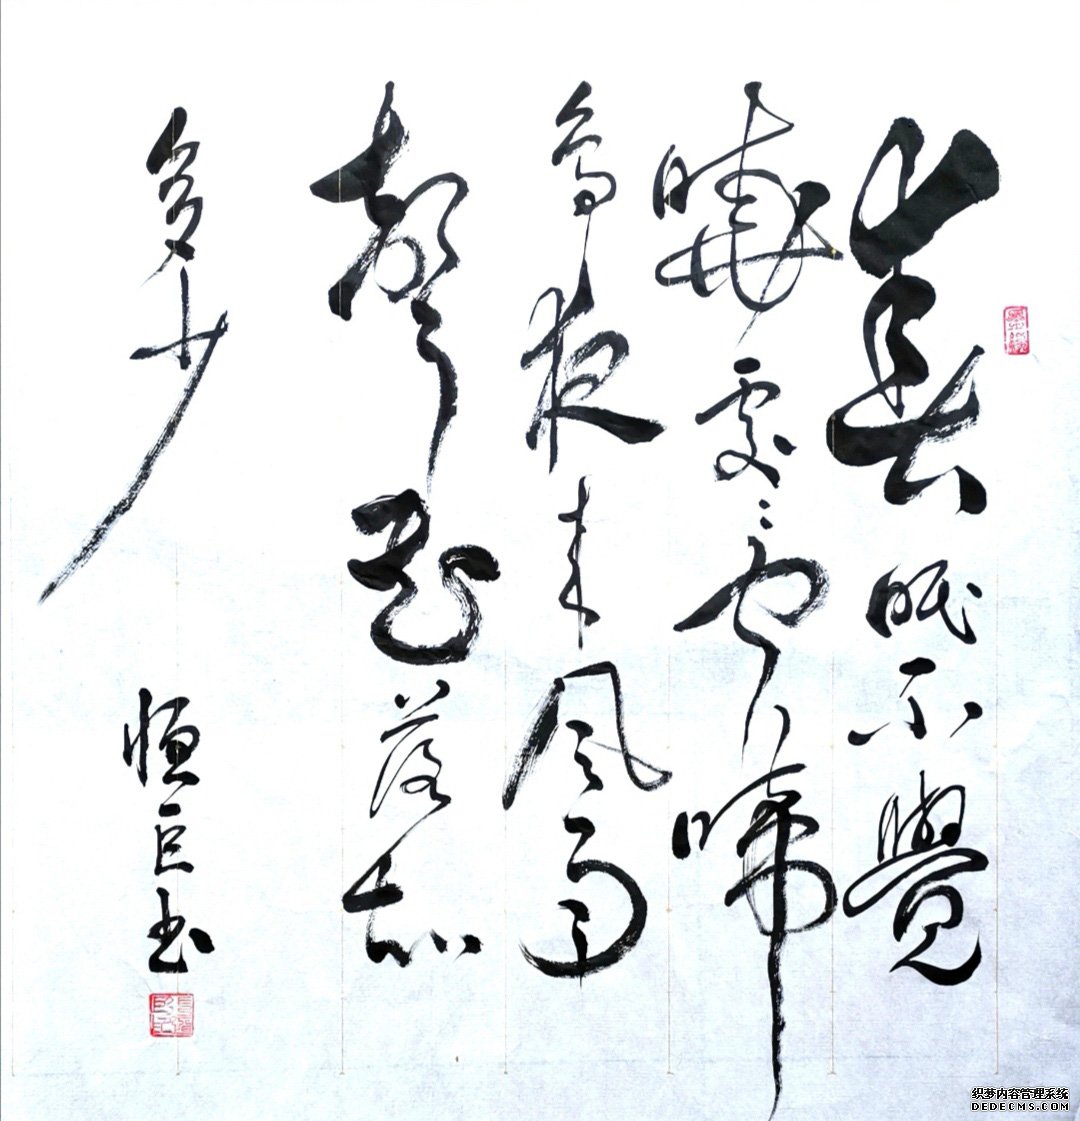 春眠不覺
曉處〻聞啼
鳥夜来風雨
聲花落知
多少
恒巨书
织梦内容管理系统
DEDECMS.COM